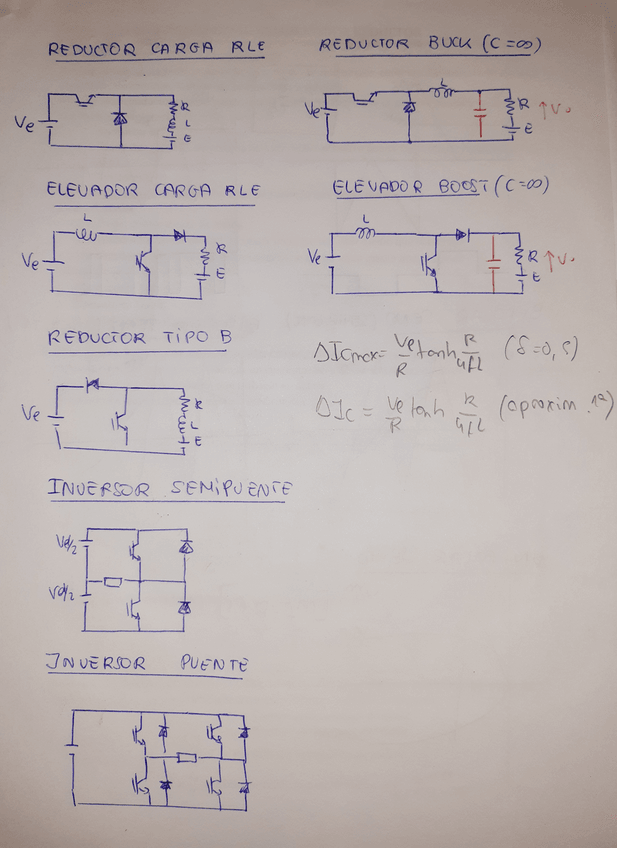 REDUCTOR CARGA RLE
Ve
R
L
E
REDUCTOR BUCK (C=∞)
Ve
L
R
E
↑V.
ELEVADOR CARGA RLE
L
Ve
R
E
ELEVADOR BOOST (C=∞)
L
Ve
R
E
↑V.
REDUCTOR TIPO B
Ve
R
L
E
ΔICmax = Ve/R tanh R/4fL (δ=0,5)
ΔIc = Ve/R tanh R/4fL (aproxim. 1ª)
INVERSOR SEMIPUENTE
Vd/2
Vd/2
INVERSOR PUENTE